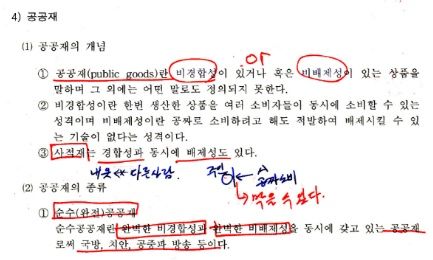 4) 공공재
(1) 공공재의 개념
or
① 공공재(public goods)란 비경합성이 있거나 혹은 비배제성이 있는 상품을
말하며 그 외에는 어떤 말로도 정의되지 못한다.
② 비경합성이란 한번 생산한 상품을 여러 소비자들이 동시에 소비할 수 있는
성격이며 비배제성이란 공짜로 소비하려고 해도 적발하여 배제시킬 수 있
는 기술이 없다는 성격이다.
③ 사적재는 경합성과 동시에 배제성도 있다.
내옷 ↔ 다른사람
공짜소비
(2) 공공재의 종류
→ 막을 수 있다.
① 순수(완전)공공재
순수공공재란 완벽한 비경합성과 완벽한 비배제성을 동시에 갖고 있는 공공재
로써 국방, 치안, 공중파 방송 등이다.